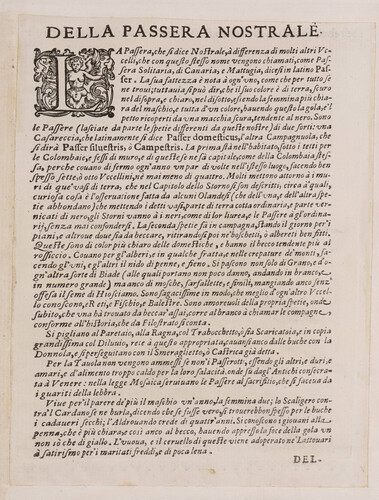 DELLA PASSERA NOSTRALE.
LA Passera, che si dice Nostrale, à differenza di molti altri Vc-
celli, che con questo stesso nome vengono chiamati, come Pas-
sera Solitaria, di Canaria, e Mattugia, dicesi in latino Pas-
ser. La sua fattezza è nota à ogn'vno, come che per tutto se
ne troui; tuttauia si può dir, che il suo colore è di terra, scuro
nel disopra, e chiaro, nel disotto, essendo la femmina più chia-
ra del maschio, e tutta d'vn color, hauendo questo la gola, e'l
petto ricoperti da vna macchia scura, tendente al nero. Sono
le Passere (lasciate da parte le spetie differenti da queste nostre) di due sorti: vna
Casareccia, che latinamente si dice Passer domesticus, l'altra Campagnuola, che
si dirà Passer siluestris, ò Campestris. La prima stà nell'habitato, sotto i tetti per
le Colombaie, e fessi di muro, e di queste se ne fà capitale, come della Colombaia stes-
sa, perche couano di fermo ogn'anno vn par di volte nell'istesso luogo, facendo ben
spesso sette, ò otto Vccellini, nè mai meno di quattro. Molti mettono attorno à i mu-
ri de que'vasi di terra, che nel Capitolo dello Storno si son descritti; circa à quali,
curiosa cosa è l'osseruatione fatta da alcuni Olandesi (che dell'vna, e dell'altra spe-
tie abbondano) che mettendo i detti vasi, parte di terra cotta ordinaria, e parte ver-
nicati di nero, gli Storni vanno à i neri, come di lor liurea, e le Passere à gl'ordina-
rij, senza mai confondersi. La seconda spetie sta in campagna, stando il giorno per i
piani, e altroue doue sia da beccare, ritirandosi poi ne' boschetti, ò alberet i ben fitti.
Queste sono di color più chiaro delle domestiche, e hanno il becco tendente più al
rossiccio. Couano per gl'alberi, e in qualche fratta, nelle crepature de monti, fa-
cendo gl'vni, e gl'altri il nido di penne, e fieno. Si pascono non solo di Grano, e d'o-
gn'altra sorte di Biade (alle quali portano non poco danno, andando in branco, e
in numero grande) ma anco di mosche, farfallette, e simili, mangiando anco senz'
offesa il seme di Hosciamo. Sono sagacissime in modo, che meglio d'ogn'altro Vccel-
lo conoscono, e Reti, e Fischio, e Balestre. Sono amorosi della propria spetie, onde
subito, che vna hà trouato da beccar'assai, corre al branco à chiamar le compagne,
conforme all'historia, che da Filostrato si conta.
Si pigliano al Paretaio, alla Ragna, col Trabocchetto, ò sia Scaricatoia, e in copia
grandissima col Diluuio, rete à questo appropriata, cauansi anco dalle buche con la
Donnola, e si perseguitano con li Smeraglietto, ò Castrica già detta.
Per la Tauola non vengono ammessi se non i Passerotti, essendo gli altri, e duri, e
amari, e d'alimento troppo caldo per la loro salacità, onde fù dagl'Antichi consecra-
ta à Venere: nella legge Mosaica seruiuano le Passere al sacrifitio, che si faceua da
i guariti della lebbra.
Viue per il parere de' più il maschio vn'anno, la femmina due; lo Scaligero con-
tra'l Cardano se ne burla, dicendo che se fusse vero, si trouerebbon spesso per le buche
i cadaueri secchi; l'Aldrouando crede di quattr'anni. Si conoscono i giouani alla
penna, che è più chiara, e così anco al becco, hauendo appresso la fece della gola vn
non sò che di giallo. L'vuoua, e il ceruello di queste viene adoperato ne'Lattouari
à satirismo per i maritati freddi, e di poca lena.
DEL-